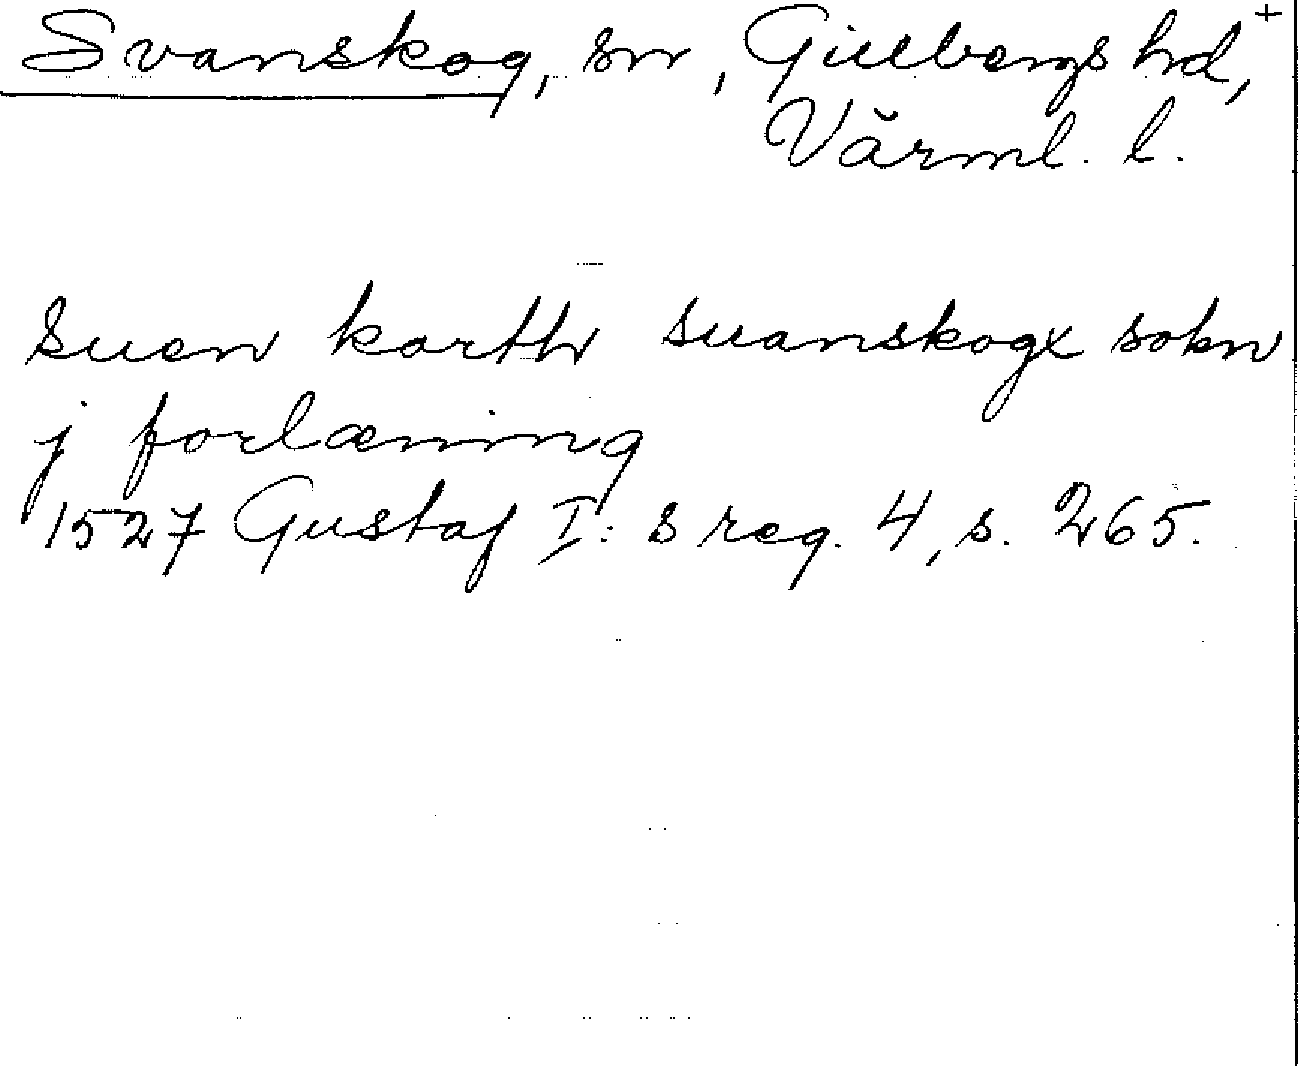 Svanskog, sn, Gillbergs hd, +
Värml. l.
suen korth suanskogx sokn
j forlæning
1527 Gustaf I: s reg. 4, s. 265.